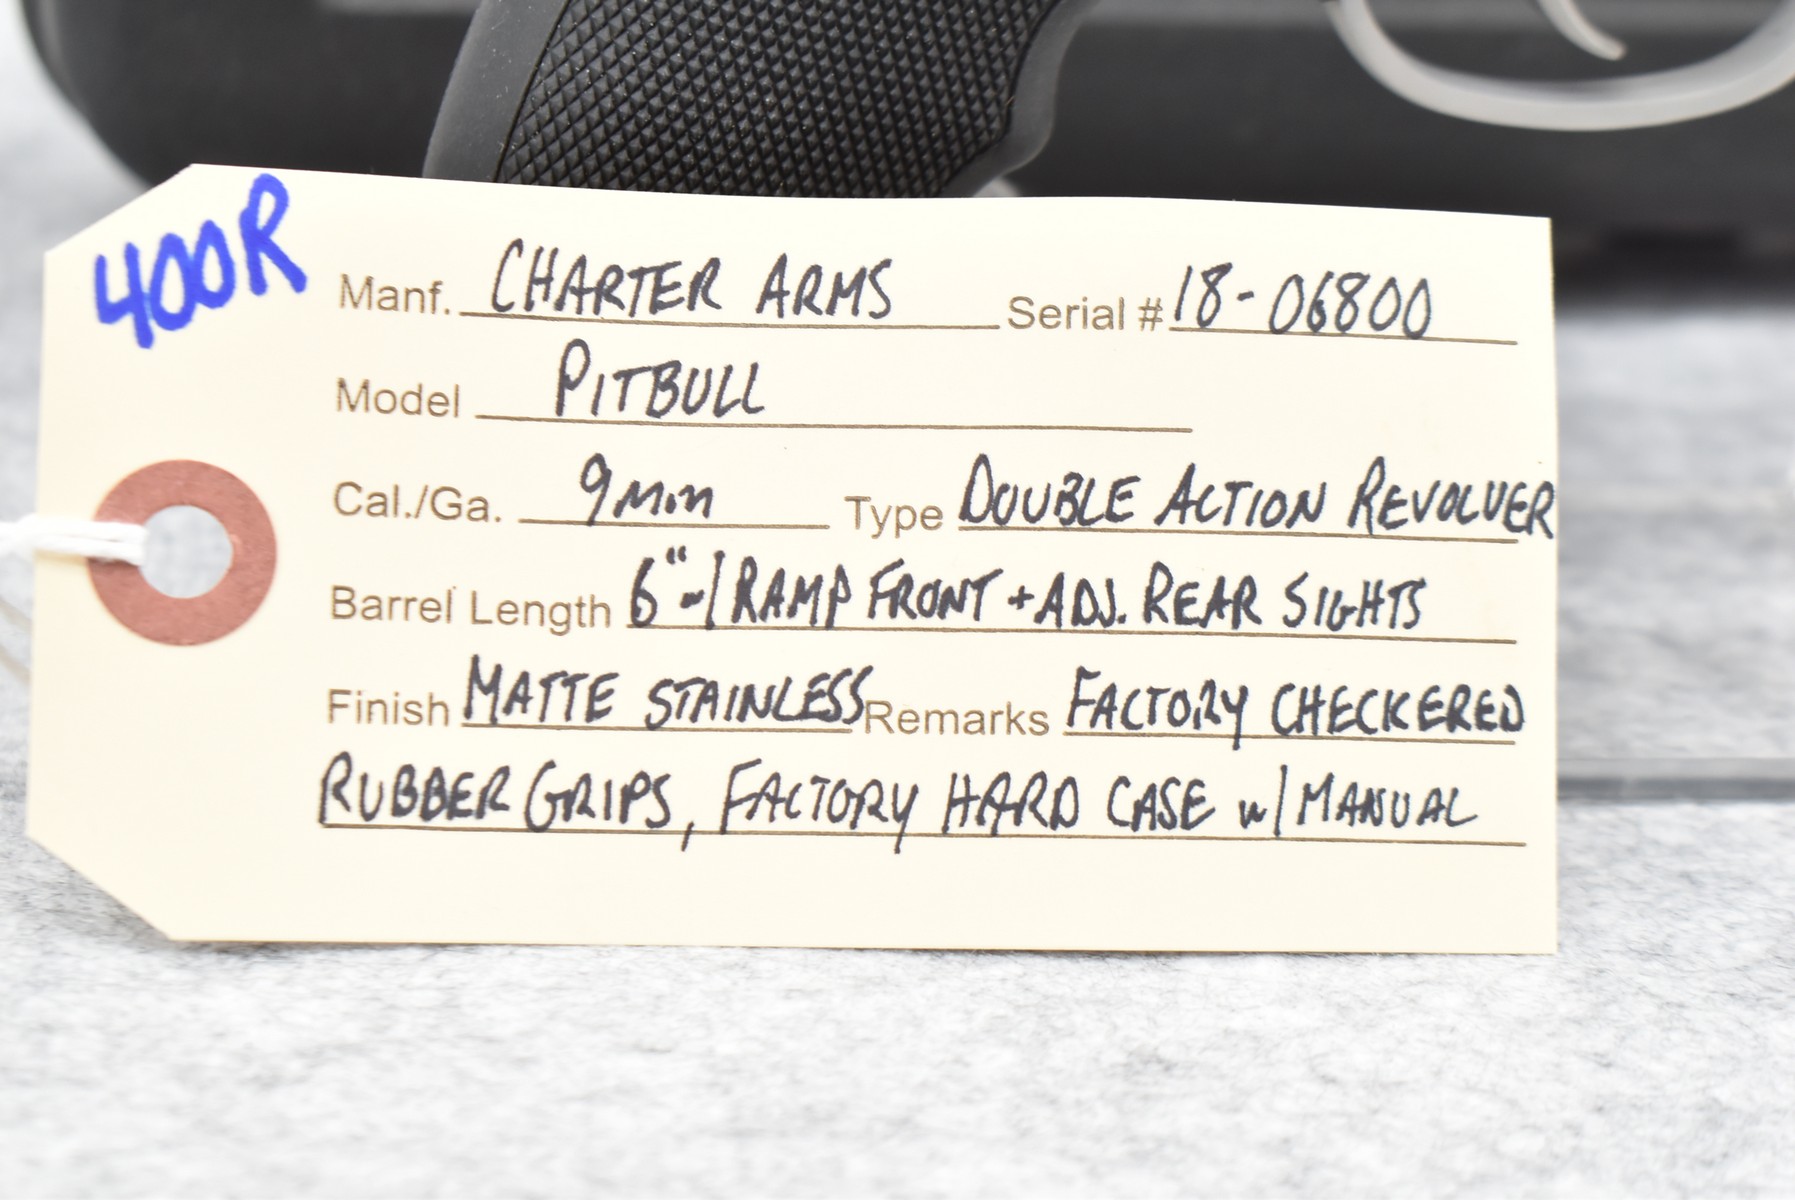 400R
Manf. CHARTER ARMS Serial # 18-06800
Model PITBULL
Cal./Ga. 9mm Type DOUBLE ACTION REVOLVER
Barrel Length 6" w/ RAMP FRONT + ADJ. REAR SIGHTS
Finish MATTE STAINLESS Remarks FACTORY CHECKERED
RUBBER GRIPS, FACTORY HARD CASE w/ MANUAL